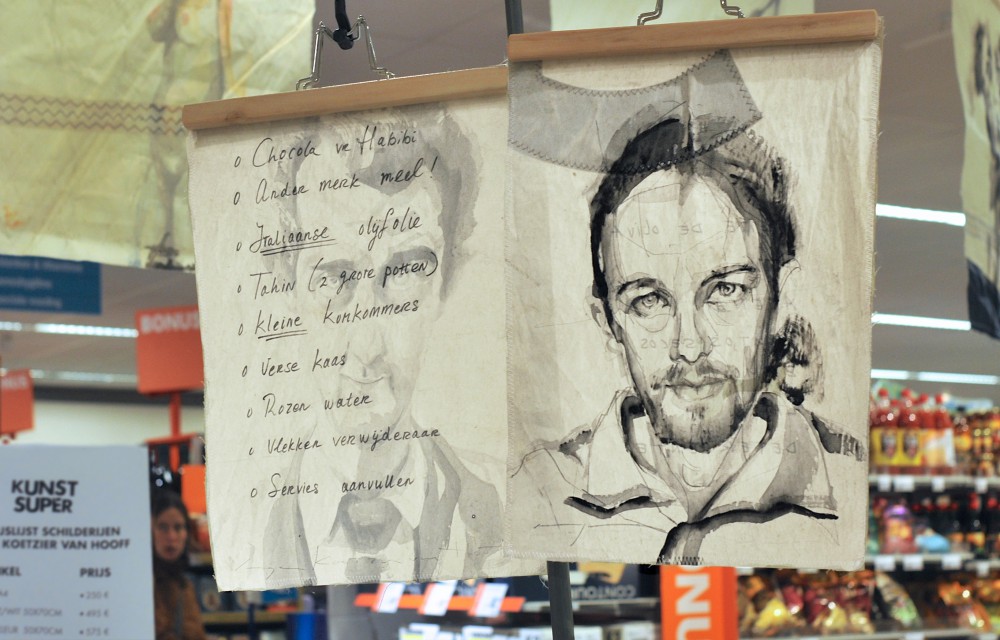 o Chocola ve Habibi
o Ander merk meel!
o Italiaanse olyfolie
o Tahin (2 grote potten)
o kleine komkommers
o Verse kaas
o Rozen water
o Vlekken verwyderaar
o Servies aanvullen
BONUS
KUNST
SUPER
JSLIJST SCHILDERIJEN
KOETZIER VAN HOOFF
KEL PRIJS
• 250 €
50X70CM • 495 €
50X70CM • 575 €
DE oliv
NU